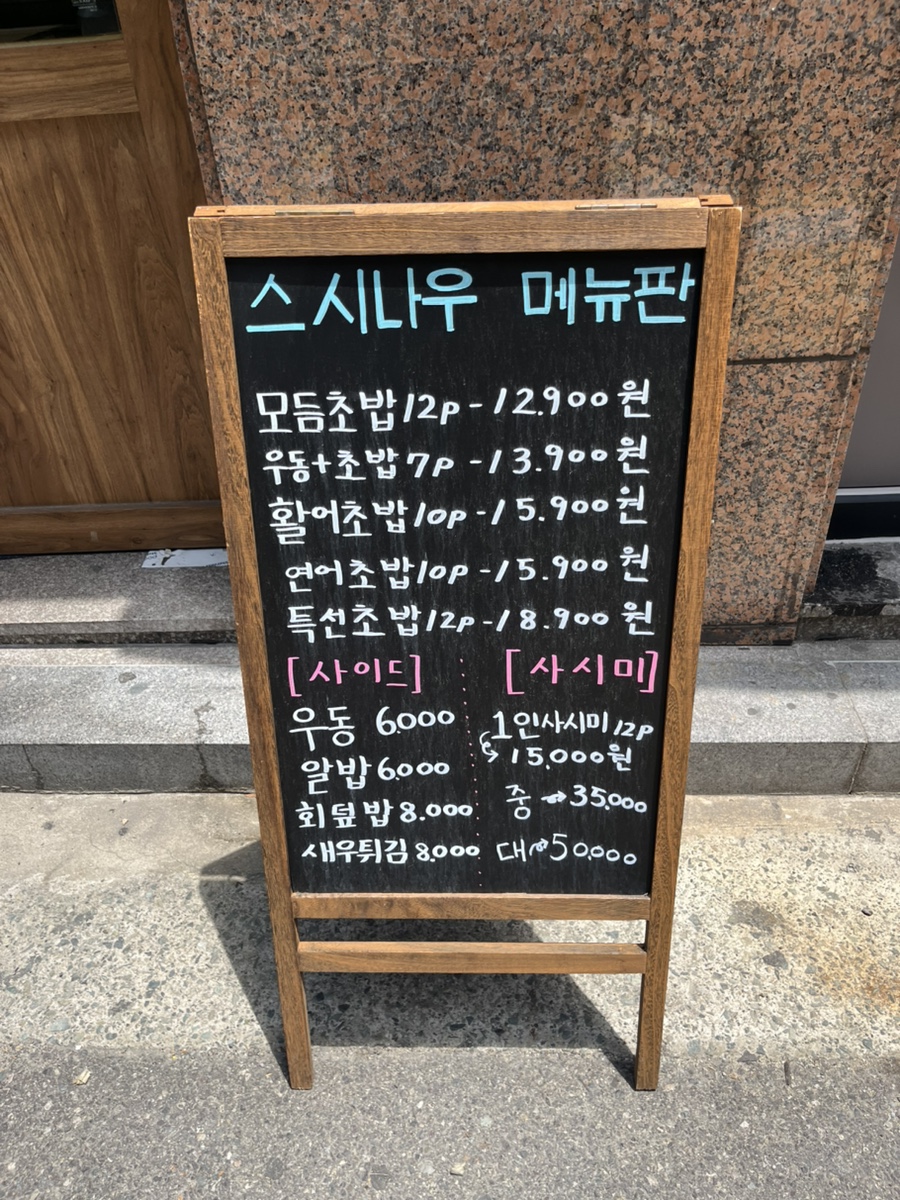 스시나우 메뉴판
모듬초밥 12p - 12.900원
우동+초밥 7p - 13.900원
활어초밥 10p - 15.900원
연어초밥 10p - 15.900원
특선초밥 12p - 18.900원
[사이드]
우동 6.000
알밥 6.000
회덮밥 8.000
새우튀김 8.000
[사시미]
1인사시미 12p
↪ 15.000원
중 → 35.000
대 → 50.000